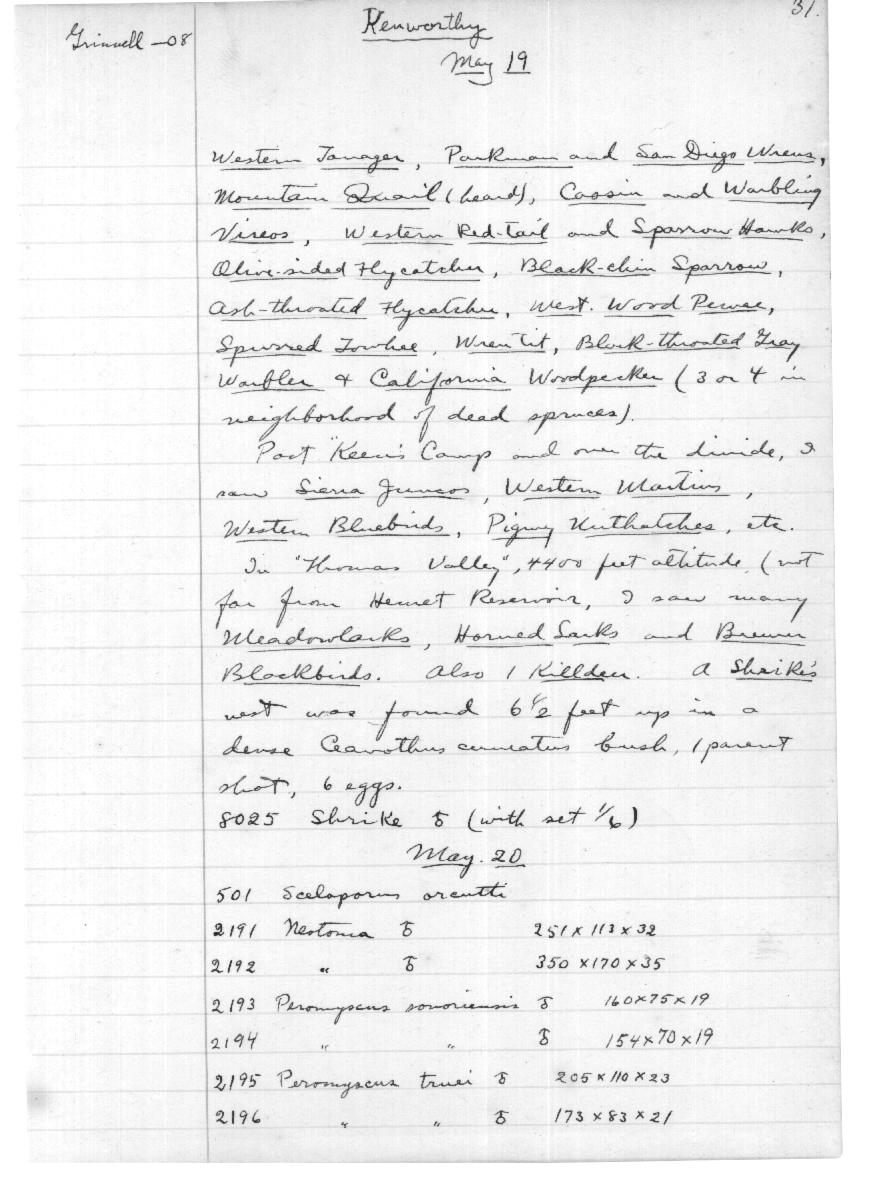 31.
Grinnell – 08
Kenworthy
May 19
Western Tanager, Parkman and San Diego Wrens,
Mountain Quail (heard), Cassin and Warbling
Vireos, Western Red-tail and Sparrow Hawks,
Olive-sided Flycatcher, Black-chin Sparrow,
Ash-throated Flycatcher, West. Wood Pewee,
Spurred Towhee, Wren tit, Black-throated Gray
Warbler & California Woodpecker (3 or 4 in
neighborhood of dead spruces).
Past Keen's Camp and over the divide, I
saw Sierra Juncos, Western Martins,
Western Bluebirds, Pigmy Nuthatches, etc.
In "Thomas Valley", 4400 feet altitude, (not
far from Hemet Reservoir, I saw many
Meadowlarks, Horned Larks and Brewer
Blackbirds. Also 1 Killdeer. A Shrike's
nest was found 6 1/2 feet up in a
dense Ceanothus cuneatus bush, 1 parent
shot, 6 eggs.
8025 Shrike ♂ (with set 1/6)
May. 20
501 Sceloporus orcutti
2191 Neotoma ♂ 251 x 113 x 32
2192 " ♂ 350 x 170 x 35
2193 Peromyscus sonoriensis ♂ 160 x 75 x 19
2194 " " ♂ 154 x 70 x 19
2195 Peromyscus truei ♂ 205 x 110 x 23
2196 " " ♂ 173 x 83 x 21